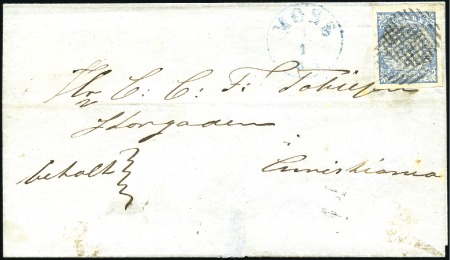 MOSS
1
Hr C. C. F. Tobiesen
Storgaden
betalt
Christiania